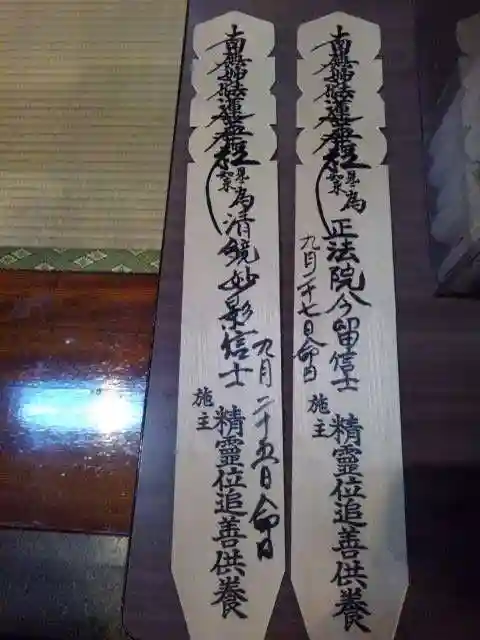 南無妙法蓮華経
為正法院今留信士
九月二十七日命日
施主
精霊位追善供養
南無妙法蓮華経
為清鏡妙影信士
九月二十五日命日
施主
精霊位追善供養